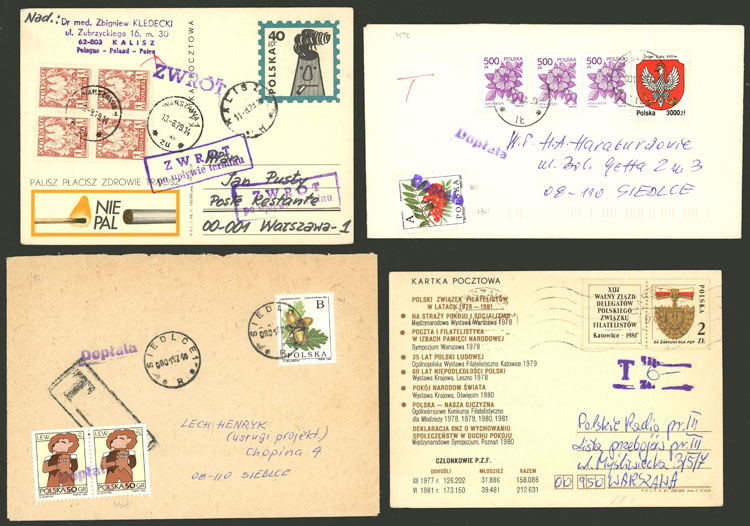 Nad.:
Dr med. Zbigniew KLEDECKI
ul. Zubrzyckiego 16, m. 30
62-803 KALISZ
Pologne - Poland
ZWROT
POCZTOWA
POLSKA 40
WARSZAWA 1
13-8.79.14
KALISZ
ZWROT
po upływie terminu
ZWROT
po upływie terminu
Jan Pusty
Poste Restante
00-001 Warszawa-1
PALISZ PŁACISZ ZDROWIE TRACISZ
NIE
PAL
T
500 ZŁ POLSKA
500 ZŁ POLSKA
500 ZŁ POLSKA
Polska 3000zł
Dopłata
W.P. H.A. Haraburdowie
ul. Boh. Getta 2 m 3
08-110 SIEDLCE
A POLSKA
SIEDLCE 1
B
POLSKA
Dopłata
T
LECH HENRYK
(usługi projekt.)
Chopina 9
08-110 SIEDLCE
LEW
LEW
POLSKA 50 GR
POLSKA 50 GR
Dopłata
KARTKA POCZTOWA
POLSKI ZWIĄZEK FILATELISTÓW
W LATACH 1978 – 1981
NA STRAŻY POKOJU I SOCJALIZMU
Międzynarodowa Wystawa Warszawa 1978
POCZTA I FILATELISTYKA
W IZBACH PAMIĘCI NARODOWEJ
Sympozjum Warszawa 1978
35 LAT POLSKI LUDOWEJ
Ogólnopolska Wystawa Filatelistyczna Katowice 1979
60 LAT NIEPODLEGŁOŚCI POLSKI
Wystawa Krajowa, Leszno 1978
POKÓJ NARODOM ŚWIATA
Wystawa Krajowa, Oświęcim 1980
POLSKA – NASZA OJCZYZNA
Ogólnokrajowe Konkursy Filatelistyczne
dla Młodzieży 1978, 1979, 1980, 1981
DEKLARACJA ONZ O WYCHOWANIU
SPOŁECZEŃSTW W DUCHU POKOJU
Międzynarodowe Sympozjum, Poznań 1980
CZŁONKOWIE P.Z.F.
DOROŚLI MŁODZIEŻ RAZEM
XII 1977 r. 126.202 31.886 158.088
VI 1981 r. 173.150 39.481 212.631
XIII
WALNY ZJAZD
DELEGATÓW
POLSKIEGO
ZWIĄZKU
FILATELISTÓW
Katowice - 1981
POLSKA
2
ZŁ
ZA ZASŁUGI DLA PZF
T
Polskie Radio pr. III
Lista przebojów pr. III
ul. Myśliwiecka 3/5/7
00 950 WARSZAWA